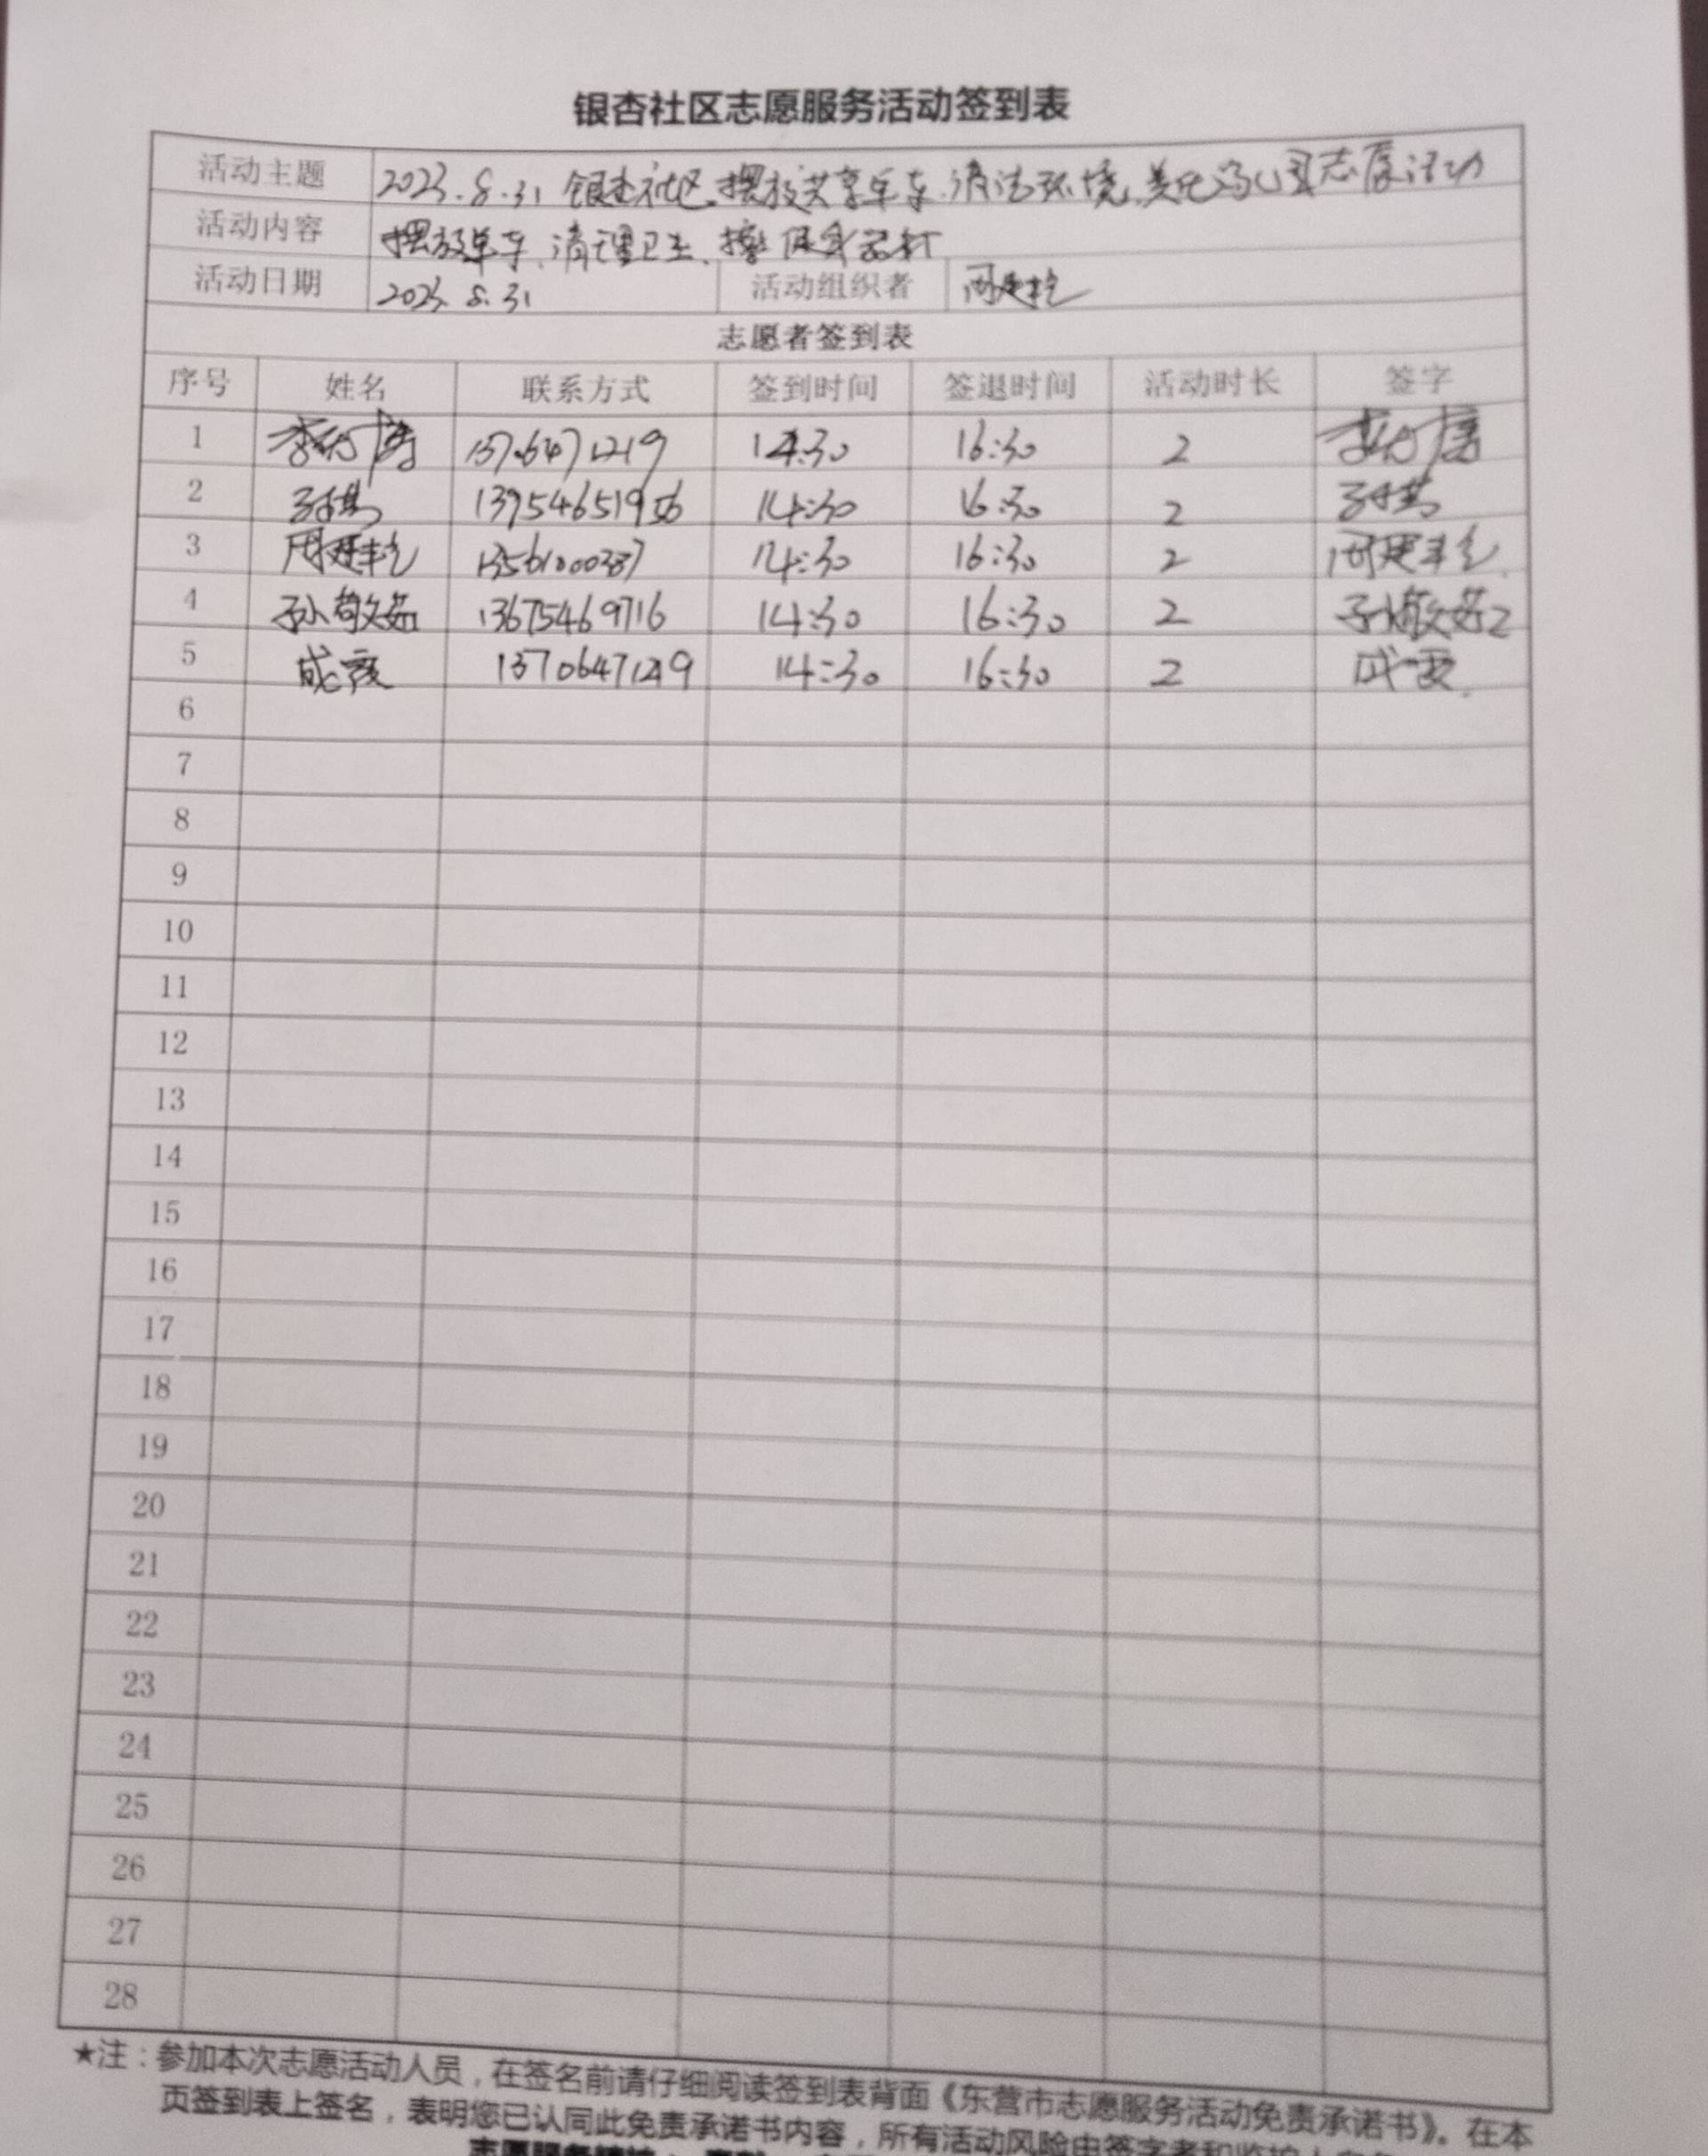 银杏社区志愿服务活动签到表
活动主题 2023.8.31 银杏社区摆放共享单车、清洁环境、美化 志愿活动
活动内容 摆放单车、清理卫生、擦健身器材
活动日期 2023.8.31 活动组织者 周建
志愿者签到表
序号 姓名 联系方式 签到时间 签退时间 活动时长 签字
1 李 14:30 16:30 2 李
2 13954651956 14:30 16:30 2
3 周建 13561000387 14:30 16:30 2 周建
4 孙敬茹 13675469716 14:30 16:30 2 孙敬茹
5 成霞 14:30 16:30 2 成霞
6
7
8
9
10
11
12
13
14
15
16
17
18
19
20
21
22
23
24
25
26
27
28
★注：参加本次志愿活动人员，在签名前请仔细阅读签到表背面《东营市志愿服务活动免责承诺书》。在本
页签到表上签名，表明您已认同此免责承诺书内容，所有活动风险由签字者和监护人
志愿服务精神：